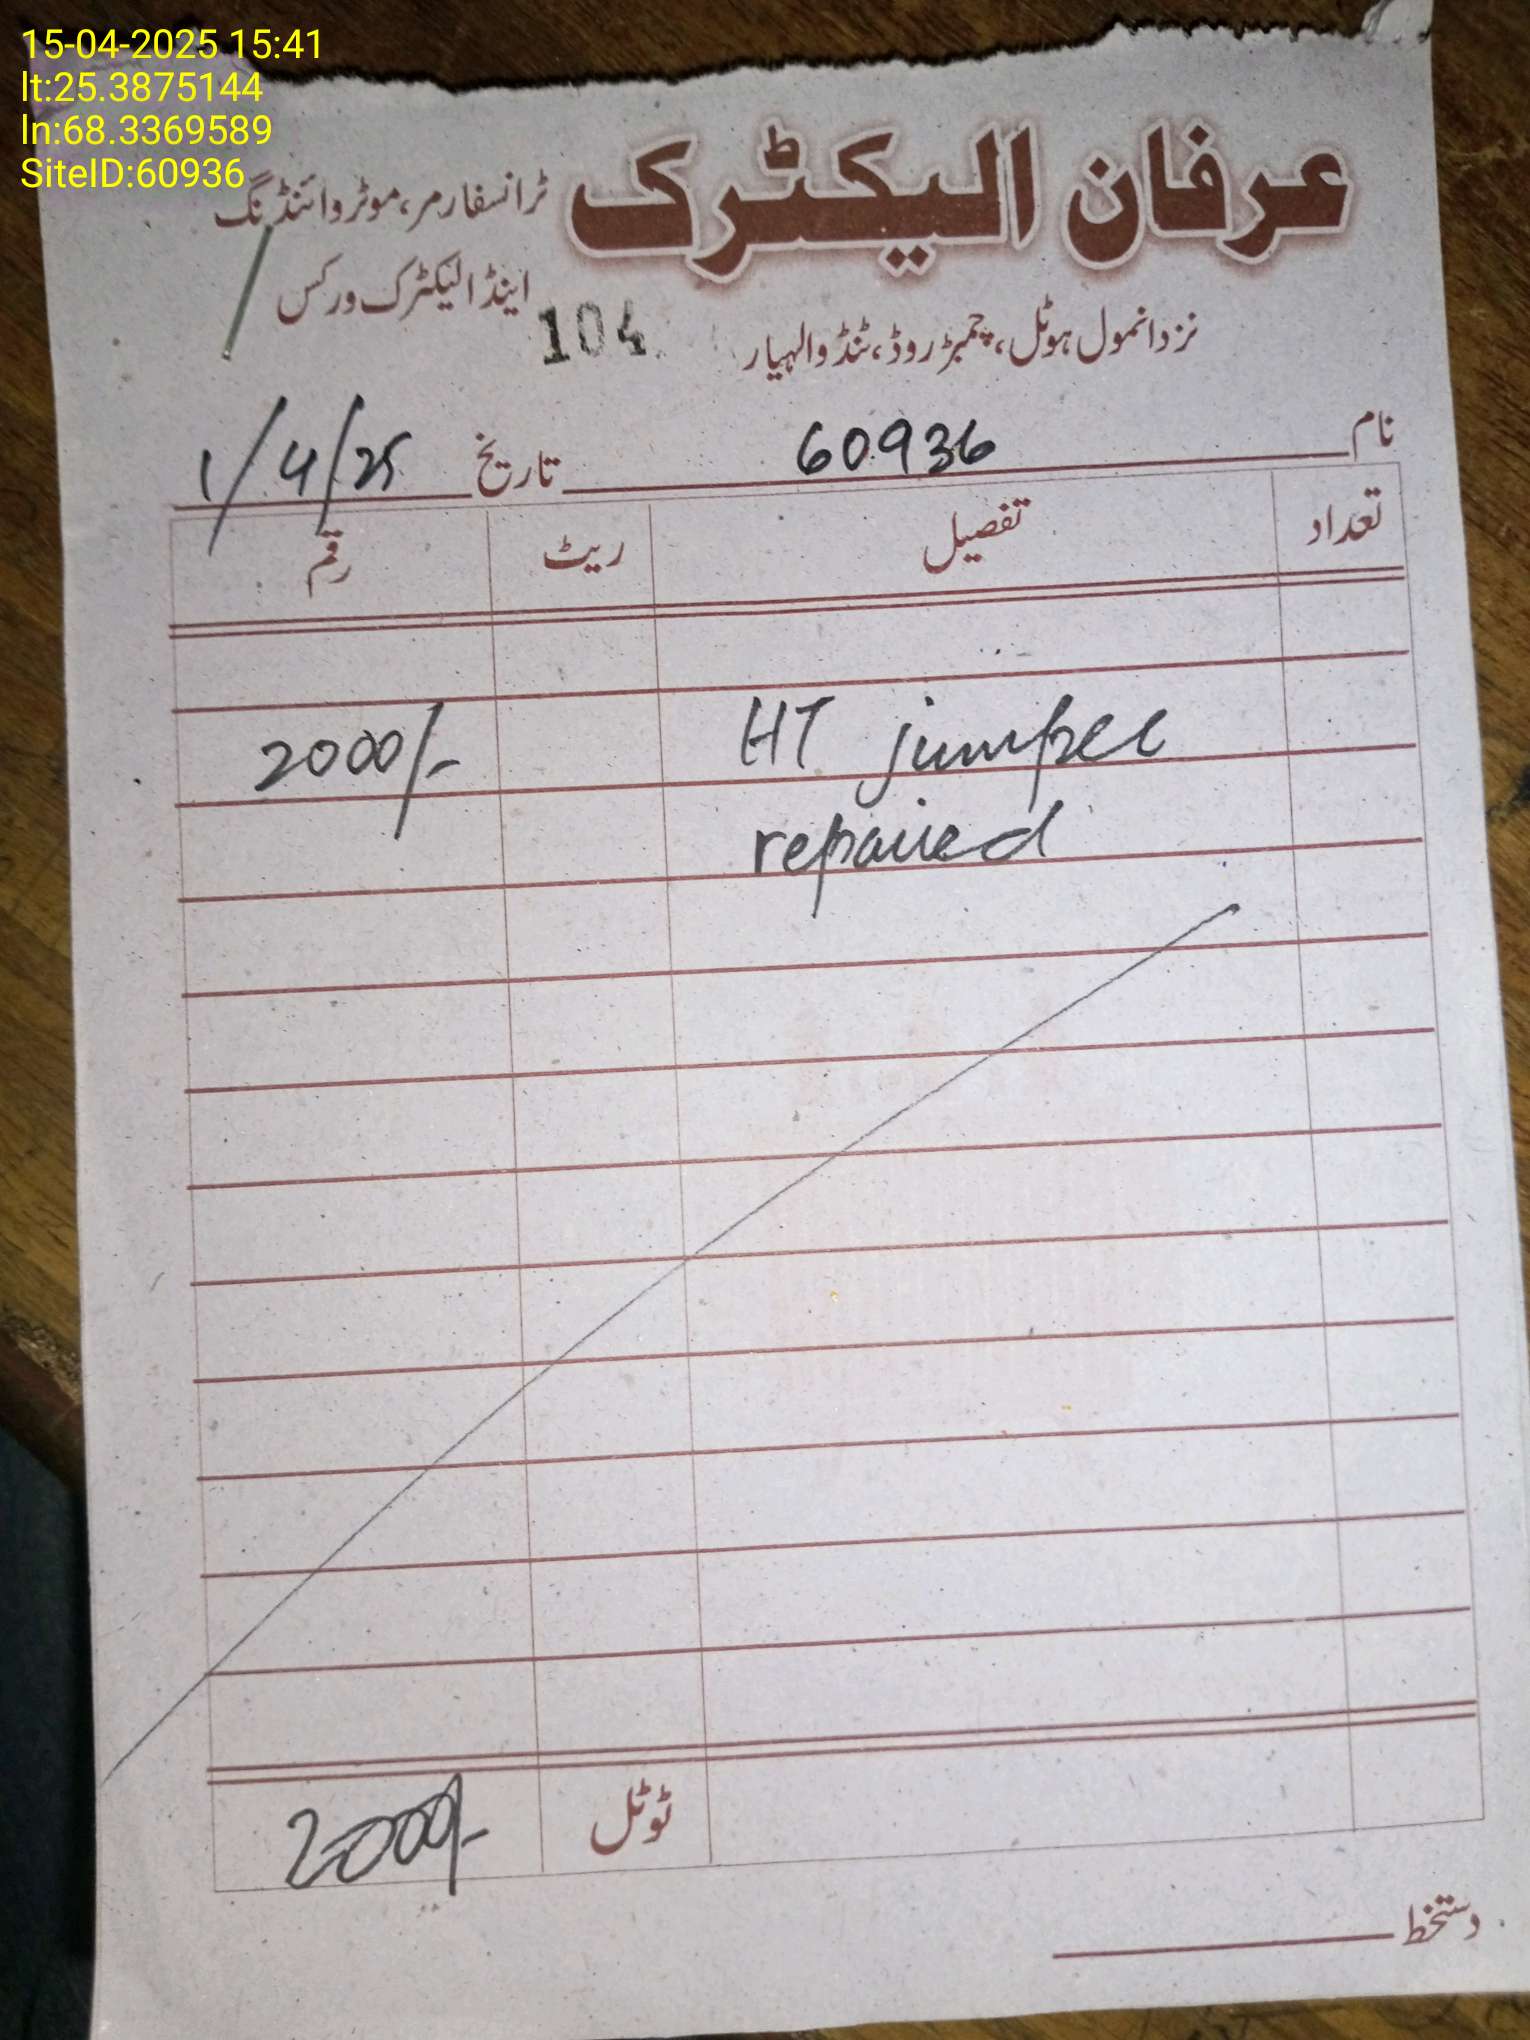 15-04-2025 15:41
lt:25.3875144
ln:68.3369589
SiteID:60936
عرفان الیکٹرک
ٹرانسفارمر، موٹر وائنڈنگ
اینڈ الیکٹرک ورکس
104
نزد انمول ہوٹل، چمبڑ روڈ، ٹنڈوالہیار
نام 60936 تاریخ 1/4/25
تعداد تفصیل ریٹ رقم
HT jumper 2000/-
repaired
ٹوٹل 2000/-
دستخط